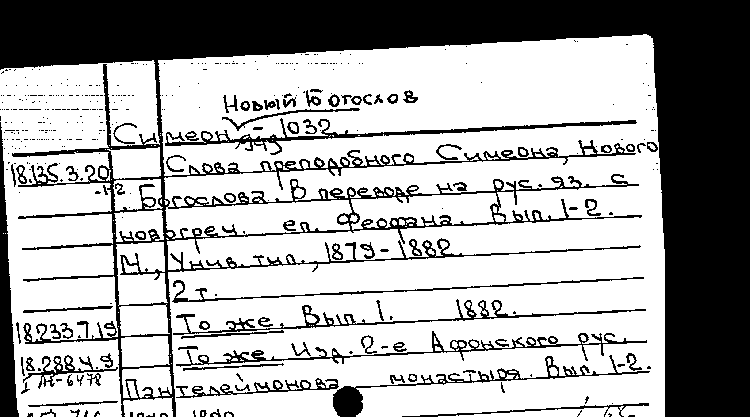 Новый Богослов
Симеон 949 - 1032.
18.135.3.20 Слова преподобного Симеона, Нового
-1-2 Богослова. В переводе на рус. яз. с
новогреч. еп. Феофана. Вып. 1-2.
М., Унив. тип., 1879-1882.
2 т.
18.233.7.19 То же. Вып. 1. 1882.
18.288.4.9 То же. Изд. 2-е Афонского рус.
Пантелеймонова монастыря. Вып. 1-2.